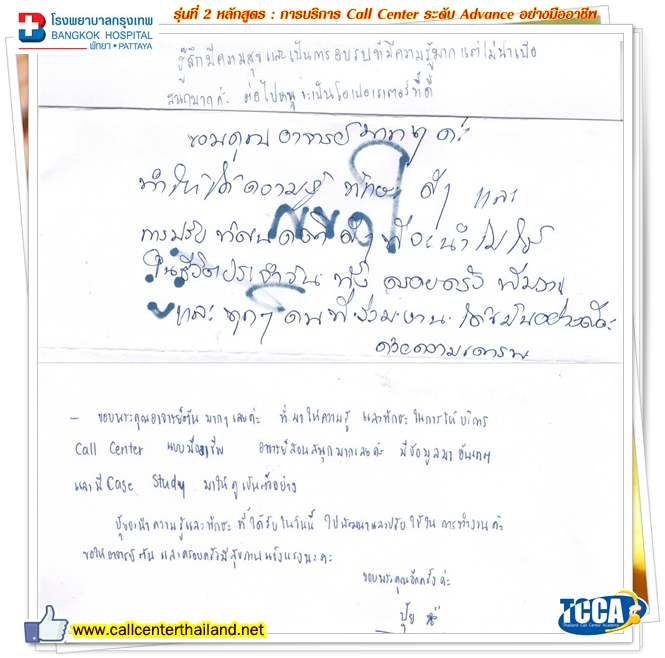 โรงพยาบาลกรุงเทพ
BANGKOK HOSPITAL
พัทยา • PATTAYA
รุ่นที่ 2 หลักสูตร : การบริการ Call Center ระดับ Advance อย่างมืออาชีพ
รู้สึกมีความสุข และเป็นการอบรมที่มีความรู้มาก แต่ไม่น่าเบื่อ
สนุกมากค่ะ ต่อไปหนูจะเป็นโอเปอเรเตอร์ที่ดี
ขอบคุณ อาจารย์มากๆ ค่ะ
ทำให้ได้ความรู้ ทักษะ ดีๆ และ
การปรับ ทัศนคติ ดีๆ ที่จะนำไปใช้
ในชีวิตประจำวัน ทั้ง ครอบครัว ทีมงาน
และ ทุกๆ คนที่ร่วมงาน ได้เป็นอย่างดีค่ะ
ด้วยความเคารพ
- ขอบพระคุณอาจารย์ต้น มากๆ เลยค่ะ ที่มาให้ความรู้ และทักษะ ในการให้บริการ
Call Center แบบมืออาชีพ อาจารย์สอนสนุกมากเลยค่ะ มีข้อมูลมาอัพเดท
และมี Case Study มาให้ดูเป็นตัวอย่าง
ปุ้ยจะนำความรู้และทักษะ ที่ได้รับในวันนี้ ไปพัฒนาและปรับใช้ใน การทำงานค่ะ
ขอให้อาจารย์ต้น และครอบครัวมีสุขภาพแข็งแรงนะคะ
ขอบพระคุณอีกครั้งค่ะ
ปุ้ย
www.callcenterthailand.net
TCCA
Thailand Call Center Academy